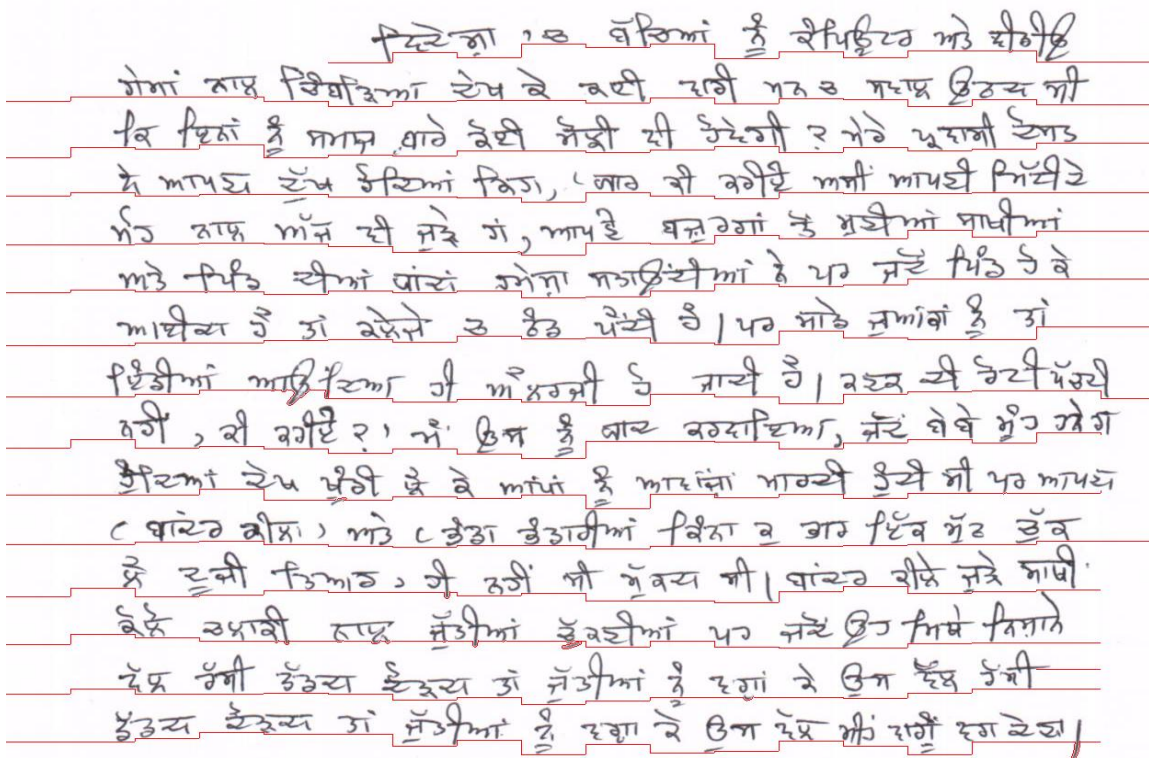 ਵਿਦੇਸ਼ਾਂ 'ਚ ਬੱਚਿਆਂ ਨੂੰ ਕੰਪਿਊਟਰ ਅਤੇ ਵੀਡੀਓ
ਗੇਮਾਂ ਨਾਲ ਚਿੰਬੜਿਆ ਦੇਖ ਕੇ ਕਈ ਵਾਰੀ ਮਨ ਚ ਸਵਾਲ ਉਠਦਾ ਸੀ
ਕਿ ਇਨਾਂ ਨੂੰ ਸਮਾਜ ਬਾਰੇ ਕੋਈ ਸੋਝੀ ਵੀ ਹੋਵੇਗੀ ? ਮੇਰੇ ਪ੍ਰਵਾਸੀ ਦੋਸਤ
ਨੇ ਆਪਣਾ ਦੁੱਖ ਰੋਂਦਿਆਂ ਕਿਹਾ, ਯਾਰ ਕੀ ਕਰੀਏ ਅਸੀਂ ਆਪਣੀ ਮਿੱਟੀ ਦੇ
ਮੋਹ ਨਾਲ ਅੱਜ ਵੀ ਜੁੜੇ ਹਾਂ, ਆਪਣੇ ਬਜ਼ੁਰਗਾਂ ਤੋਂ ਸੁਣੀਆਂ ਸਾਖੀਆਂ
ਅਤੇ ਪਿੰਡ ਦੀਆਂ ਯਾਦਾਂ ਹਮੇਸ਼ਾ ਸਤਾਉਂਦੀਆਂ ਨੇ ਪਰ ਜਦੋਂ ਪਿੰਡ ਹੋ ਕੇ
ਆਈਦਾ ਹੈ ਤਾਂ ਕਲੇਜੇ ਚ ਠੰਡ ਪੈਂਦੀ ਹੈ। ਪਰ ਸਾਡੇ ਜੁਆਕਾਂ ਨੂੰ ਤਾਂ
ਇੰਡੀਆਂ ਆਉਂਦਿਆ ਹੀ ਅੈਲਰਜੀ ਹੋ ਜਾਂਦੀ ਹੈ। ਕਣਕ ਦੀ ਰੋਟੀ ਪੱਚਦੀ
ਨਹੀਂ, ਕੀ ਕਰੀਏ ?' ਮੈਂ ਉਸ ਨੂੰ ਯਾਦ ਕਰਵਾਇਆ, ਜਦੋਂ ਬੇਬੇ ਮੂੰਹ ਹਨੇਰਾ
ਹੁੰਦਿਆਂ ਦੇਖ ਖੂੰਡੀ ਲੈ ਕੇ ਆਪਾਂ ਨੂੰ ਆਵਾਜ਼ਾਂ ਮਾਰਦੀ ਹੁੰਦੀ ਸੀ ਪਰ ਆਪਣਾ
( ਬਾਂਦਰ ਕੀਲਾ ) ਅਤੇ ( ਭੰਡਾ ਭੰਡਾਰੀਆਂ ਕਿੰਨਾ ਕੁ ਭਾਰ ਇੱਕ ਮੁੱਠ ਚੁੱਕ
ਲੈ ਦੂਜੀ ਤਿਆਰ, ਹੀ ਨਹੀਂ ਸੀ ਮੁੱਕਦਾ ਸੀ। ਬਾਂਦਰ ਕੀਲੇ ਜੁੜੇ ਸਾਥੀ
ਕੋਲੋਂ ਚਲਾਕੀ ਨਾਲ ਜੁੱਤੀਆਂ ਚੁੱਕਣੀਆਂ ਪਰ ਜਦੋਂ ਉਹ ਮਿਥੇ ਨਿਸ਼ਾਨੇ
ਵੱਲ ਰੱਸੀ ਛੱਡਦਾ ਦੌੜਦਾ ਤਾਂ ਜੁੱਤੀਆਂ ਨੂੰ ਵਗਾ ਕੇ ਉਸ ਵੱਲ ਰੱਸੀ
ਛੱਡਦਾ ਦੌੜਦਾ ਤਾਂ ਜੁੱਤੀਆਂ ਨੂੰ ਵਗਾ ਕੇ ਉਸ ਵੱਲ ਮੀਂਹ ਵਾਂਗੂੰ ਵਗਾ ਦੇਣਾ।